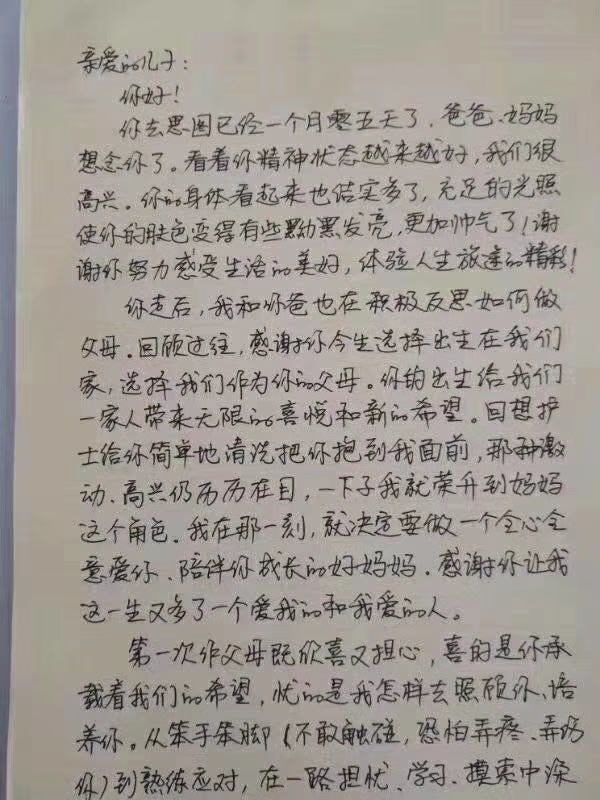 亲爱的儿子:
你好!
你去思图已经一个月零五天了,爸爸、妈妈
想念你了。看着你精神状态越来越好,我们很
高兴。你的身体看起来也结实多了,充足的光照
使你的肤色变得有些黝黑发亮,更加帅气了!谢
谢你努力感受生活的美好,体验人生旅途的精彩!
你走后,我和你爸也在积极反思如何做
父母。回顾过往,感谢你今生选择出生在我们
家,选择我们作为你的父母。你的出生给我们
一家人带来无限的喜悦和新的希望。回想护
士给你简单地清洗把你抱到我面前,那种激
动、高兴仍历历在目,一下子我就荣升到妈妈
这个角色。我在那一刻,就决定要做一个全心全
意爱你、陪伴你成长的好妈妈。感谢你让我
这一生又多了一个爱我的和我爱的人。
第一次作父母既欣喜又担心,喜的是你承
载着我们的希望,忧的是我怎样去照顾你、培
养你。从笨手笨脚(不敢触碰,恐怕弄疼、弄伤
你)到熟练应对,在一路担忧、学习、摸索中深